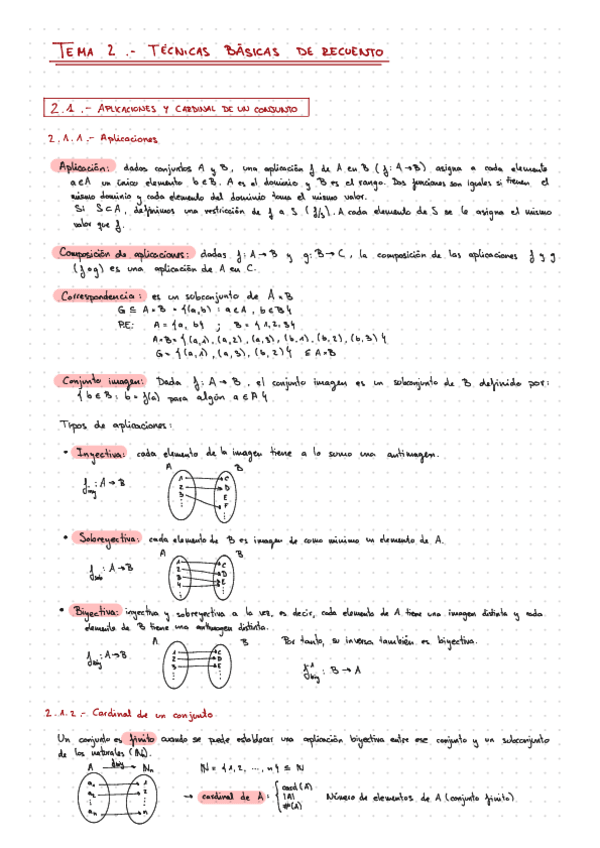 TEMA 2.- TÉCNICAS BÁSICAS DE RECUENTO
2.1.- APLICACIONES Y CARDINAL DE UN CONJUNTO
2.1.1.- Aplicaciones
Aplicación: dados conjuntos A y B, una aplicación f de A en B (f: A→B) asigna a cada elemento
a∈A un único elemento b∈B. A es el dominio y B es el rango. Dos funciones son iguales si tienen el
mismo dominio y cada elemento del dominio toma el mismo valor.
Si S⊂A, definimos una restricción de f a S (f/s). A cada elemento de S se le asigna el mismo
valor que f.
Composición de aplicaciones: dadas f: A→B y g: B→C, la composición de las aplicaciones f y g
(f∘g) es una aplicación de A en C.
Correspondencia: es un subconjunto de A×B
G ⊆ A×B = {(a,b) : a∈A, b∈B}
P.E: A = {a, b} ; B = {1, 2, 3}
A×B = {(a,1), (a,2), (a,3), (b,1), (b,2), (b,3)}
G = {(a,1), (a,3), (b,2)} ⊆ A×B
Conjunto imagen: Dada f: A→B, el conjunto imagen es un subconjunto de B definido por:
{b∈B : b = f(a) para algún a∈A}
Tipos de aplicaciones:
• Inyectiva: cada elemento de la imagen tiene a lo sumo una antimagen.
A B
f iny : A→B
1 C
2 D
3 E
⋮ F
⋮
• Sobreyectiva: cada elemento de B es imagen de como mínimo un elemento de A.
A B
f sob : A→B
1 C
2 D
3 E
4 ⋮
⋮
• Biyectiva: inyectiva y sobreyectiva a la vez, es decir, cada elemento de A tiene una imagen distinta y cada
elemento de B tiene una antimagen distinta.
A B Por tanto, su inversa también es biyectiva.
f biy : A→B
1 C
2 D
3 E
⋮ ⋮
f⁻¹ biy : B→A
2.1.2.- Cardinal de un conjunto
Un conjunto es finito cuando se puede establecer una aplicación biyectiva entre ese conjunto y un subconjunto
de los naturales (ℕn).
A f biy → ℕn ℕ = {1, 2, ..., n} ≤ ℕ
a1 1
a2 2
⋮ ⋮
an n
→ cardinal de A: { card(A) |A| #(A) Número de elementos de A (conjunto finito)